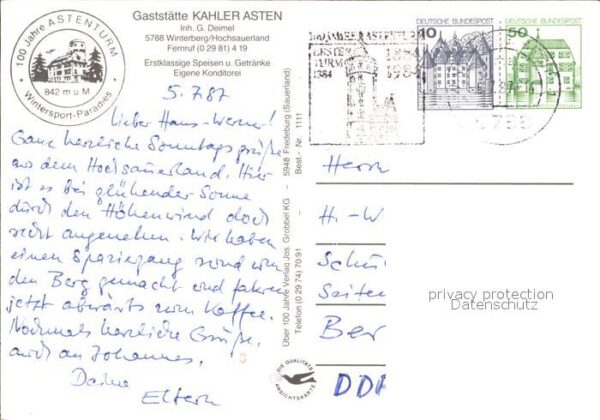 100 Jahre ASTENTURM
842 m ü M
Wintersport-Paradies
Gaststätte KAHLER ASTEN
Inh. G. Deimel
5788 Winterberg/Hochsauerland
Fernruf (0 29 81) 4 19
Erstklassige Speisen u. Getränke
Eigene Konditorei
5.7.87
Lieber Hans-Werner!
Ganz herzliche Sonntagsgrüße
aus dem Hochsauerland. Hier
ist es bei glühender Sonne
durch den Höhenwind doch
recht angenehm. Wir haben
einen Spaziergang rund um
den Berg gemacht und fahren
jetzt abwärts zum Kaffee.
Nochmals herzliche Grüße,
auch an Johannes.
Deine
Eltern
Über 100 Jahre Verlag Jos. Grobbel KG — 5948 Fredeburg (Sauerland)
Telefon (0 29 74) 70 91
Best.-Nr. 1111
DIE QUALITÄTS
ANSICHTSKARTE
100 JAHRE ASTENTURM
1884
1984
DEUTSCHE BUNDESPOST
10
DEUTSCHE BUNDESPOST
50
Herrn
H.-W
Schü
Seiten
Ber
DDR
privacy protection
Datenschutz